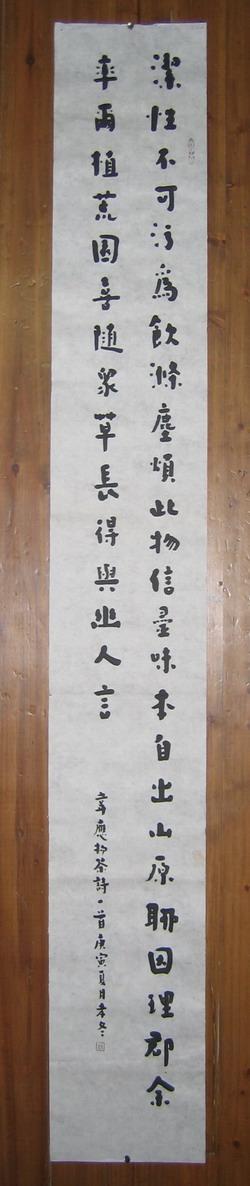 潔性不可污為飲滌塵煩此物信靈味本自出山原聊因理郡余
率爾植荒園喜随眾草長得與幽人言
韋應物茶詩一首庚寅夏月